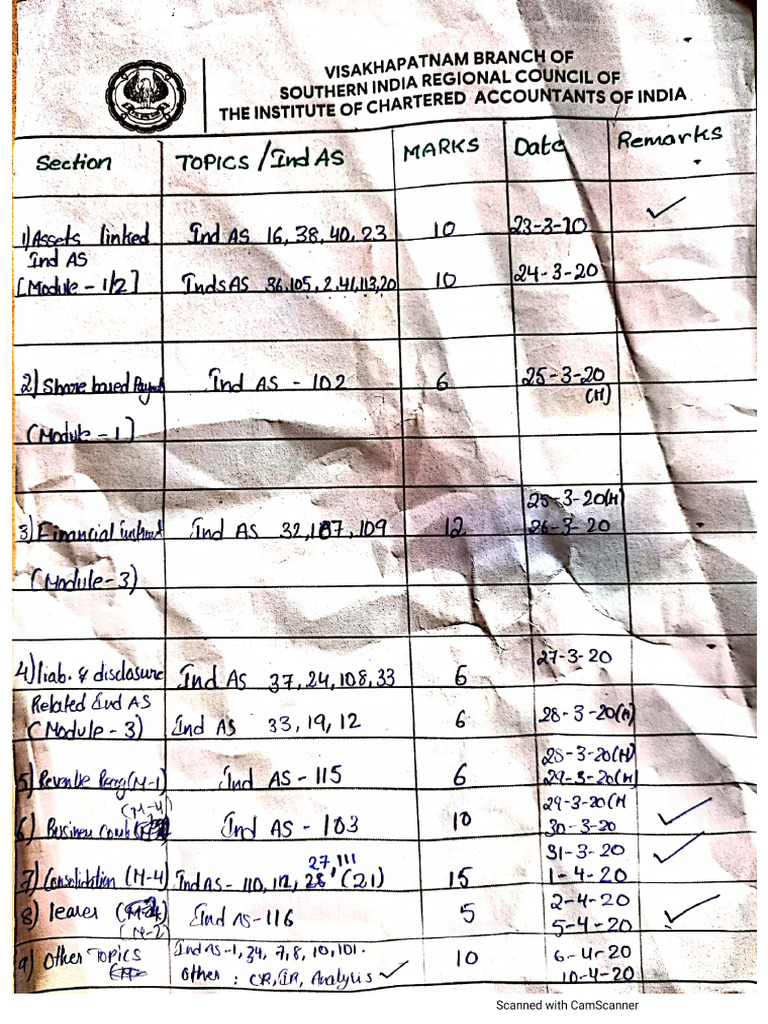 VISAKHAPATNAM BRANCH OF
SOUTHERN INDIA REGIONAL COUNCIL OF
THE INSTITUTE OF CHARTERED ACCOUNTANTS OF INDIA
Section TOPICS / Ind AS MARKS Date Remarks
1) Assets linked Ind AS 16, 38, 40, 23 10 23-3-20 ✓
Ind AS
[Module - 1/2] IndsAS 36, 105, 2, 41, 113, 20 10 24-3-20
2) Share based Ind AS - 102 6 25-3-20
(H)
(Module - 1]
25-3-20(H)
3) Financial Ind AS 32, 107, 109 12 26-3-20
(Module-3)
27-3-20
4) liab. & disclosure Ind AS 37, 24, 108, 33 6
Related Ind AS
(Module - 3) Ind AS 33, 19, 12 6 28-3-20(H)
28-3-20(H)
5) Revenue (M-1) Ind AS - 115 6 29-3-20(H)
(M-4) 29-3-20(H
6) Business Comb Ind AS - 103 10 30-3-20 ✓
27, 111 31-3-20 ✓
7) Consolidation (M-4) Ind AS - 110, 112, 28, (21) 15 1-4-20
2-4-20
8) leases Ind AS - 116 5 5-4-20 ✓
(M-2)
9) Other TOPICS Ind AS - 1, 34, 7, 8, 10, 101. 10 6-4-20
Other : CR, IR, Analysis ✓ 10-4-20
Scanned with CamScanner